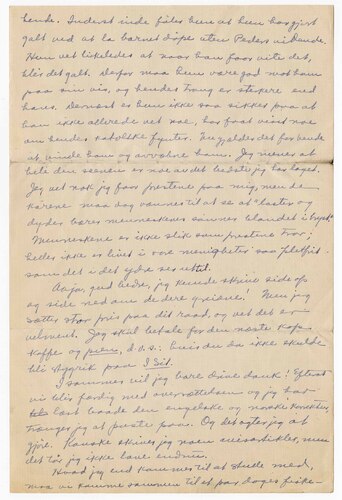 hende. Inderst inde føler hun at hun har gjort
galt ved at la barnet døpe uten Peders vidende.
Hun vet likeledes at naar han faar vite det,
blir det galt. Derfor maa hun være god mot ham
paa sin vis, og hendes trang er sterkere end
hans. Dernæst er hun ikke saa sikker paa at
han ikke allerede vet noe, har faat visst noe
om hendes katolske fynter. Nu gjælder det for hende
at vinde ham og avvæpne ham. Jeg mener at
hele den scenen er noe av det bedste jeg har laget.
Jeg vet nok jeg faar prestene paa mig, men de
karene maa dog vænnes til at se at "laster og
dyder bares menneskenes sønner blandet i bryst"
Menneskene er ikke slik som prestene tror!
heller ikke er livet i vore menigheter saa pletfrit
som det i det ytre ser ut til.
Akja, gud bedre, jeg kunde skrive side op
og side ned om de dere greiene. Men jeg
sætter stor pris paa dit raad, og vet det er
velment. Jeg skal betale for den næste kop
kaffe og , d.v.s. hvis du da ikke skulde
bli hyggelig paa I Sit.
I sommer vil jeg bare dine dank! Efterat
vi blir færdig med oversættelsen og jeg har
last baade den engelske og norske korrektur,
trænger jeg at puste paa. Og det agter jeg at
gjøre. Kanske skriver jeg noen avisartikler, men
det tør jeg ikke love endnu.
Hvad jeg end kommer til at stude med,
maa vi komme sammen til et par dages fiske-